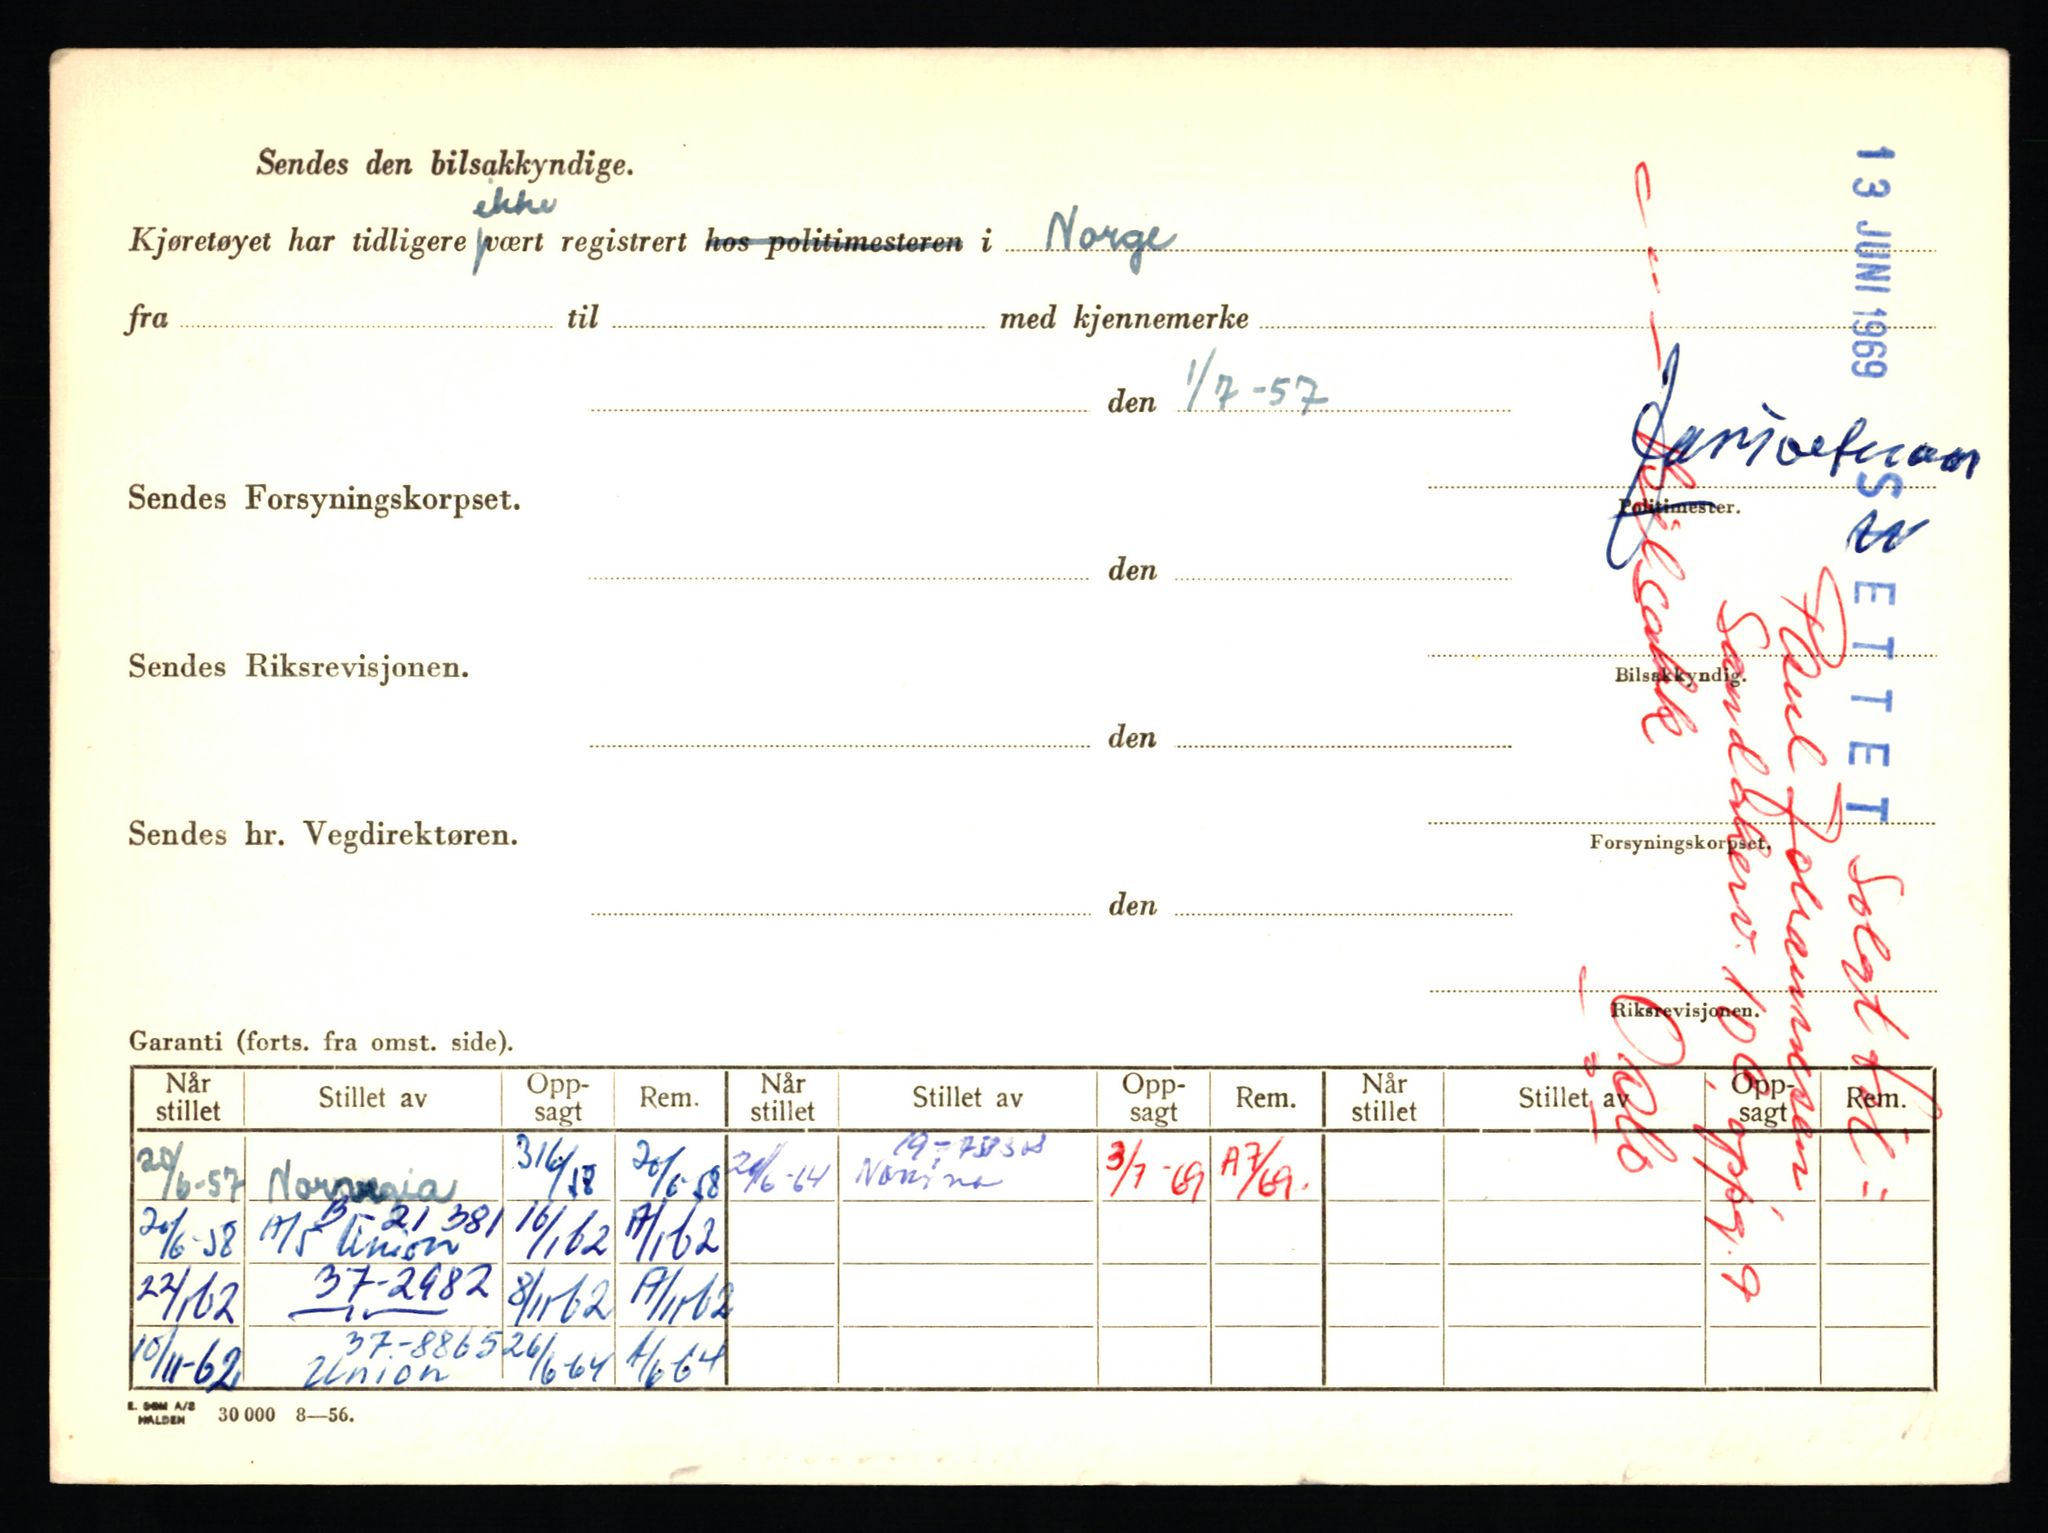 Sendes den bilsakkyndige.
ikke
Kjøretøyet har tidligere vært registrert hos politimesteren i Norge
fra til med kjennemerke
den 1/7-57
Politimester.
Sendes Forsyningskorpset.
den
Bilsakkyndig.
Sendes Riksrevisjonen.
den
Forsyningskorpset.
Sendes hr. Vegdirektøren.
den
Riksrevisjonen.
13 JUNI 1969 SLETTET
Solgt til:
Poul Johannesen
Sandakerv. 10 C, oppg. 9
Oslo
Garanti (forts. fra omst. side).
Når stillet Stillet av Opp-sagt Rem. Når stillet Stillet av Opp-sagt Rem. Når stillet Stillet av Opp-sagt Rem.
20/6-57 Norvegia 20/6-58 19- 3/7-69 A7/69.
20/6-58 A/S Union B-21381 16/1 62 A/1 62
22/1 62 37-2982 8/11-62 A/11 62
10/11-62 37-8865 Union 26/6-64 A/6-64
E. SEM A/S
HALDEN 30 000 8—56.